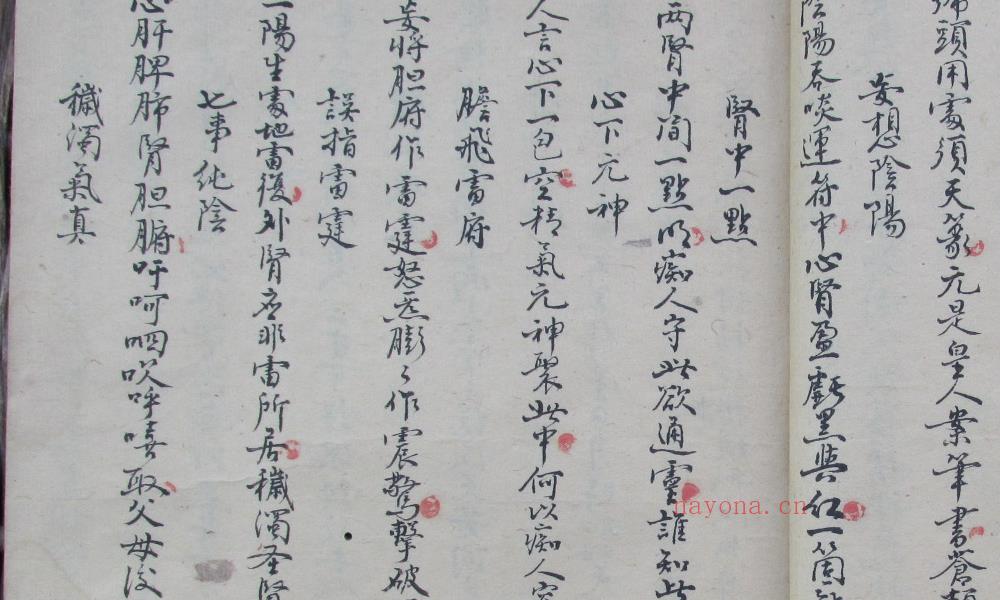 頭用處須天篆元是皇人案筆書蒼頡
妄想陰陽
陰陽吞啖運符中心腎盈虧黑與紅一箇
腎中一點
兩腎中间一點明痴人守此欲通靈誰知此
心下元神
人言心下一包空精氣元神聚此中何以痴人
膽飛雷府
妄將胆府作雷霆怒惡膨〻作震驚擊破
誤指雷霆
一陽生處地雷復外腎應非雷所居穢濁圣賢
七事純陰
心肝脾肺腎胆腑吁呵呬吹呼嘻取父母
穢濁氣真
nayona.cn